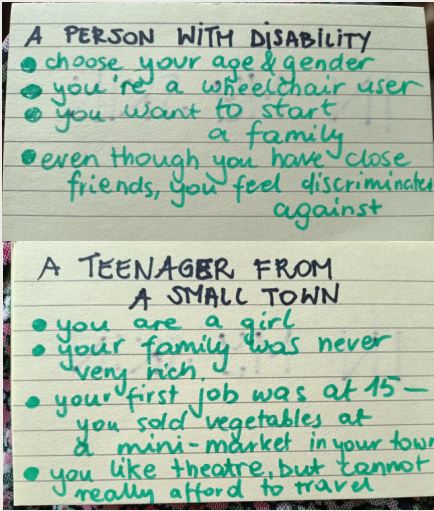 A PERSON WITH DISABILITY
• choose your age & gender
• you're a wheelchair user
• you want to start
a family
• even though you have close
friends, you feel discriminated
against
A TEENAGER FROM
A SMALL TOWN
• you are a girl
• your family was never
very rich
• your first job was at 15 –
you sold vegetables at
a mini-market in your town
• you like theatre, but cannot
really afford to travel